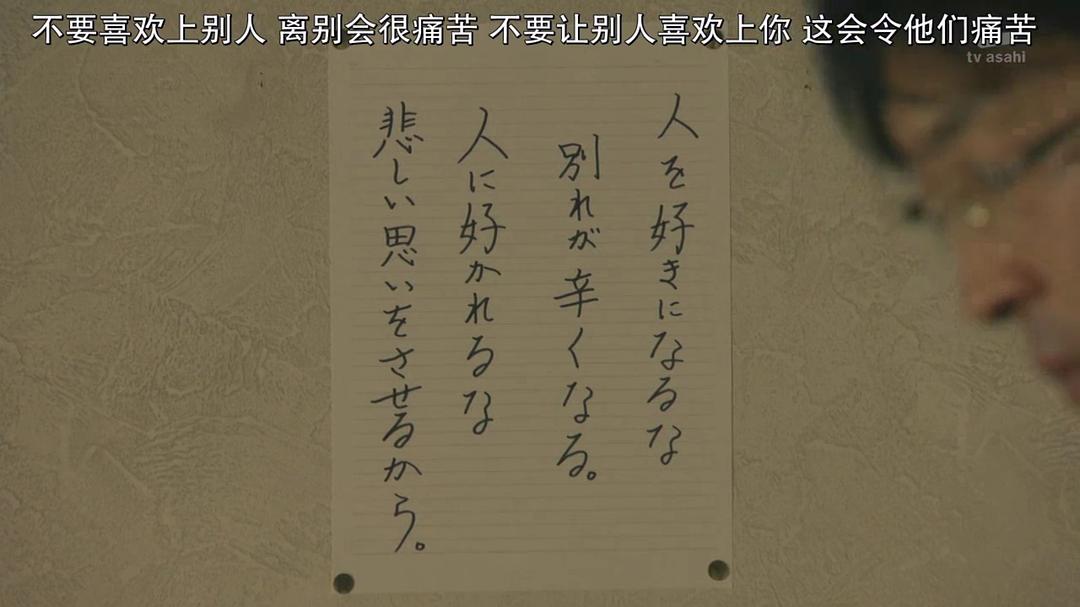 不要喜欢上别人 离别会很痛苦 不要让别人喜欢上你 这会令他们痛苦
tv asahi
人を好きになるな
別れが辛くなる。
人に好かれるな
悲しい思いをさせるから。